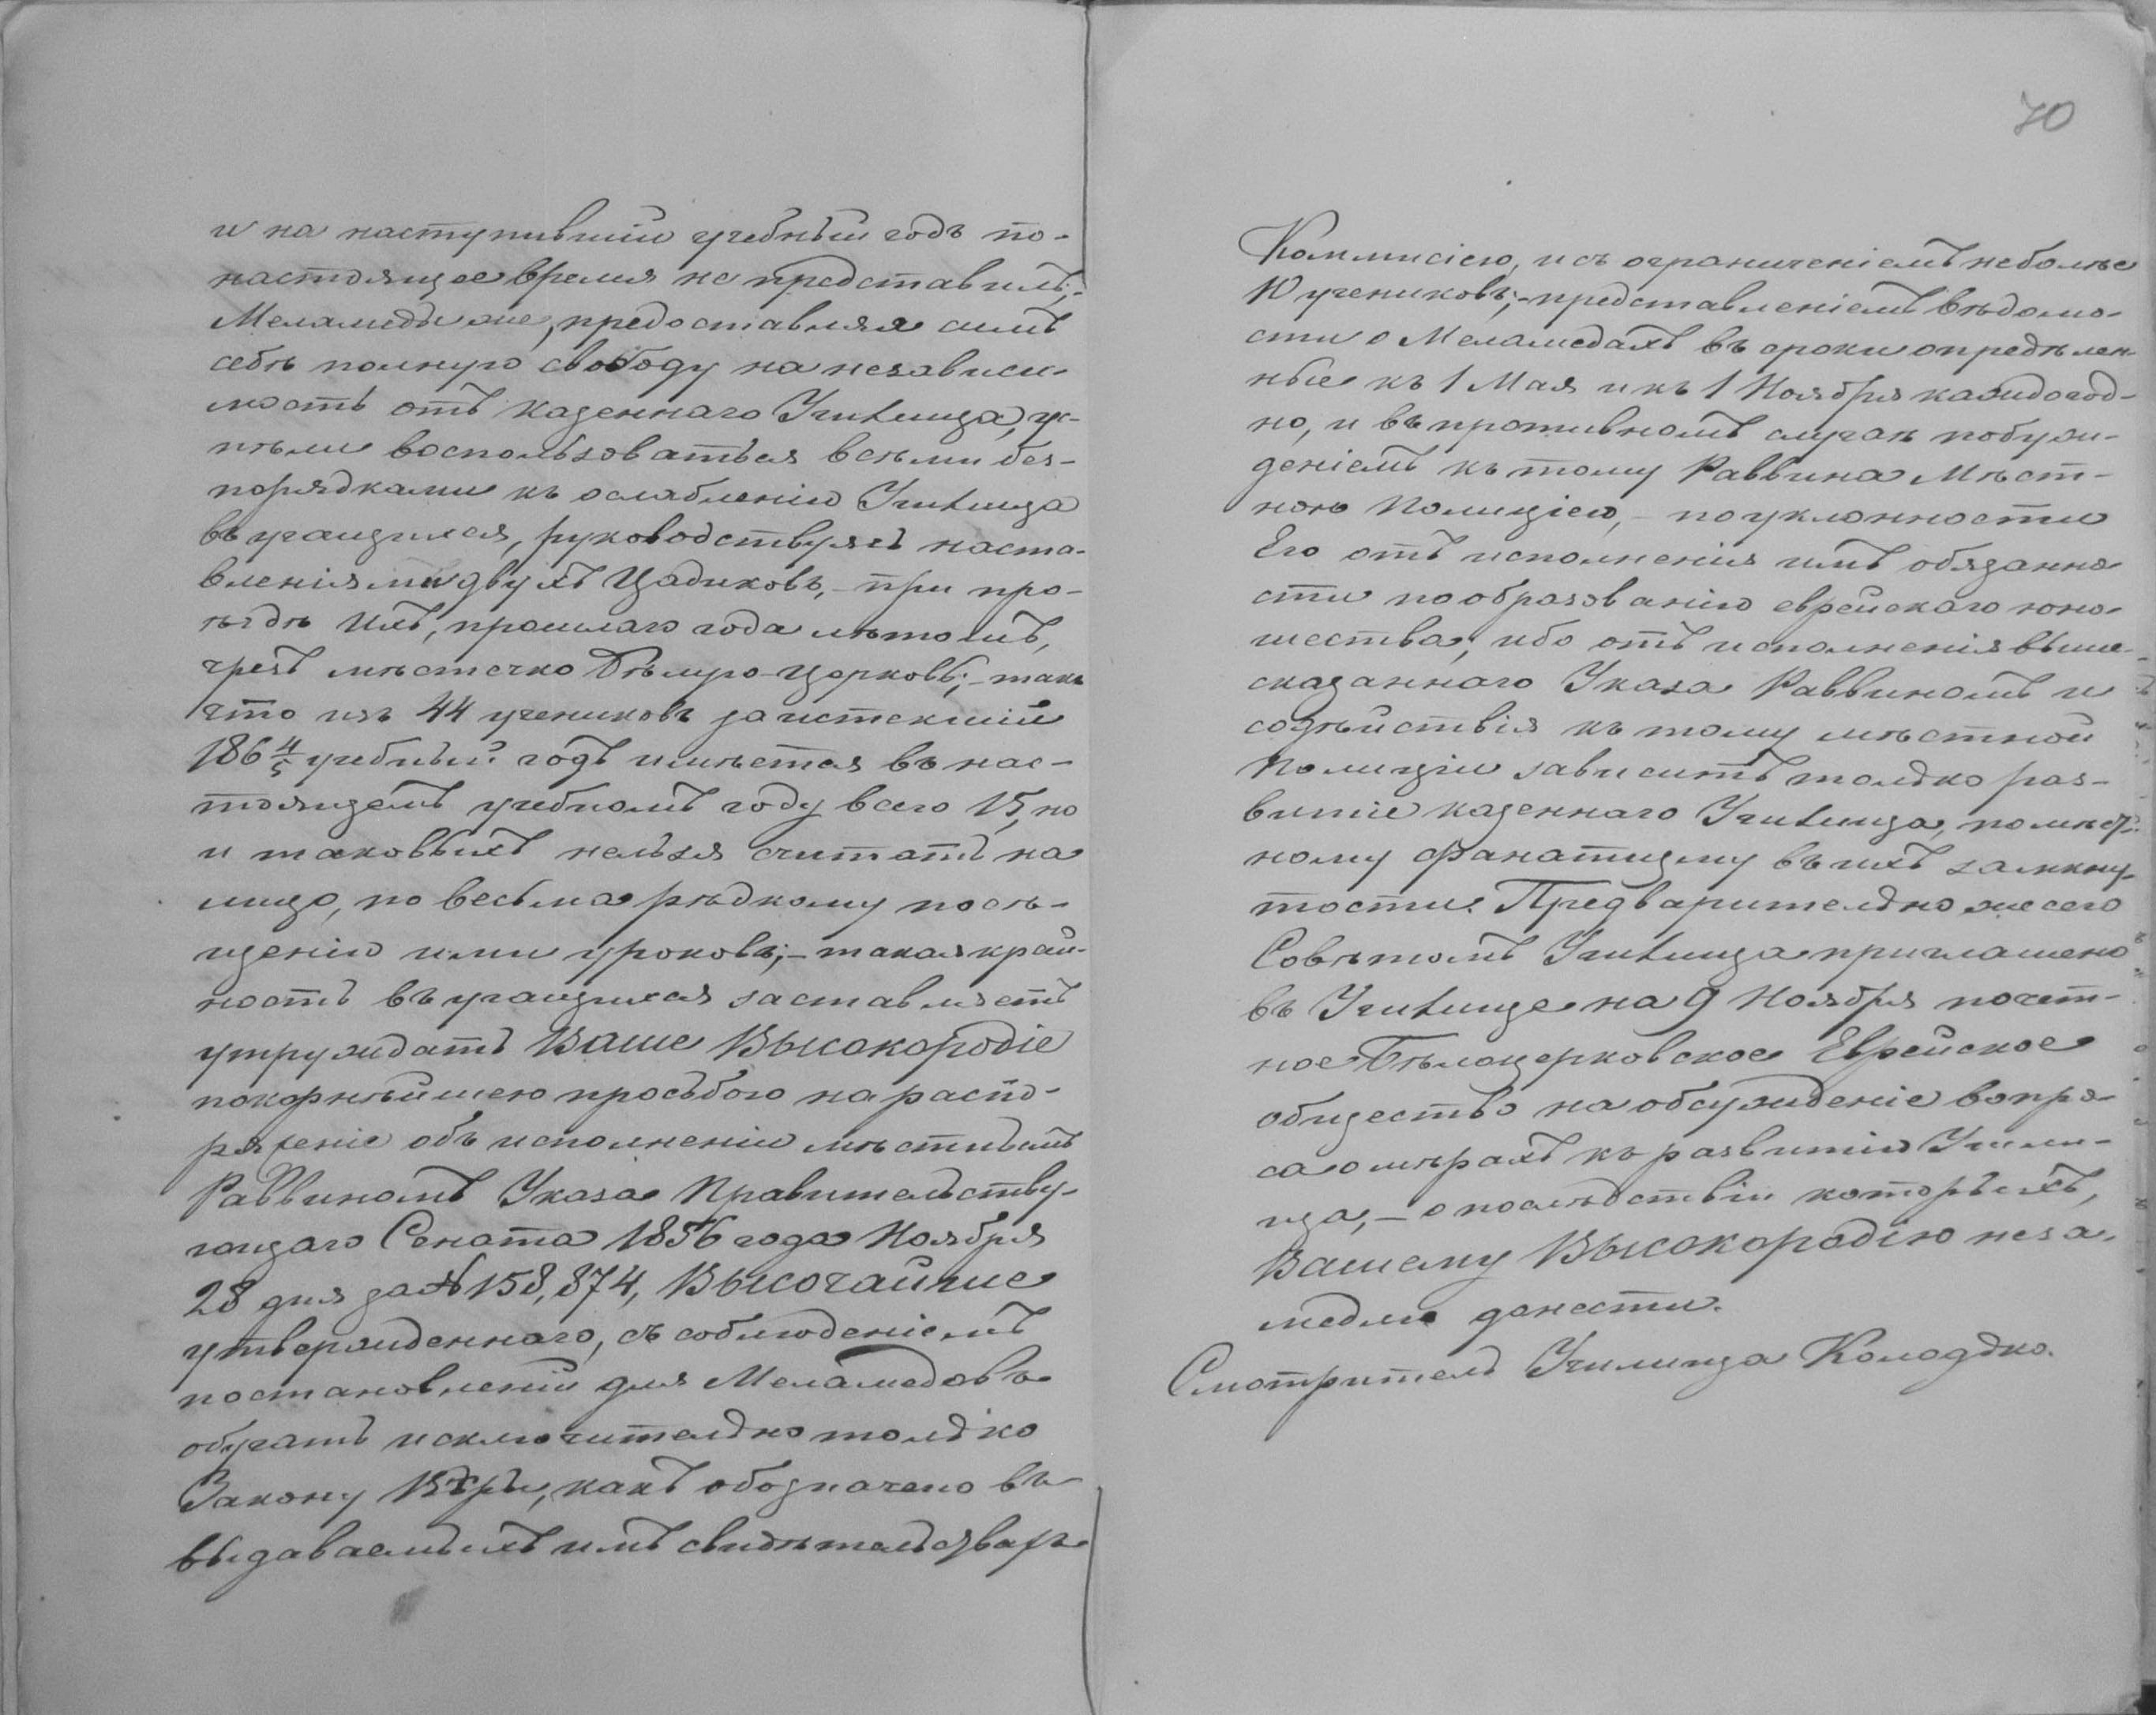 и на наступившій учебный годъ по-
настоящее время не представилъ;-
Меламеды же, предоставляя симъ
себѣ полную свободу на независи-
мость отъ казеннаго Училища, ус-
пѣли воспользоваться всѣми без-
порядками къ ослабленію Училища
въ учащихся, руководствуясь наста-
вленіями двухъ Цадиковъ,- при про-
ѣздѣ ихъ, прошлаго года лѣтомъ,
чрезъ мѣстечко Бѣлую-Церковь;- такъ
что изъ 44 учениковъ за истекшій
186 4/5 учебный годъ имѣется въ нас-
тоящемъ учебномъ году всего 15, но
и таковыхъ нельзя считать на
лицо, по весьма рѣдкому посѣ-
щенію ими уроковъ;- такая край-
ность въ учащихся заставляетъ
утруждать Ваше Высокородіе
покорнѣйшею просьбою на распо-
ряженіе объ исполненіи мѣстнымъ
Раввиномъ Указа Правительству-
ющаго Сената 1856 года Ноября
28 дня за № 158,874, Высочайше
утвержденнаго, съ соблюденіемъ
постановленій для Меламедовъ
обучать исключительно только
Закону Вѣры, какъ обозначено въ
выдаваемыхъ имъ свидѣтельствахъ
70
Коммисіею, и съ ограниченіемъ неболѣе
10 учениковъ;- представленіемъ вѣдомо-
сти о Меламедахъ въ сроки опредѣлен-
ные къ 1 Мая и къ 1 Ноября каждогод-
но, и въ противномъ случаѣ побуж-
деніемъ къ тому Раввина Мѣст-
ною Полиціею,- по уклонности
Его отъ исполненія имъ обязанно-
сти по образованію еврейскаго юно-
шества; ибо отъ исполненія выше-
сказаннаго Указа Раввиномъ и
содѣйствія къ тому мѣстной
Полиціи зависитъ только раз-
витіе казеннаго Училища,
ному фанатизму въ ихъ замкну-
тости. Предварительно же сего
Совѣтомъ Училища приглашено
въ Училище на 9 Ноября почет-
ное Бѣлоцерковское Еврейское
общество на обсужденіе вопро-
са о мѣрахъ къ развитію Учили-
ща,- о послѣдствіи которыхъ,
Вашему Высокородію неза-
медлю донести.
Смотритель Училища Колодко.